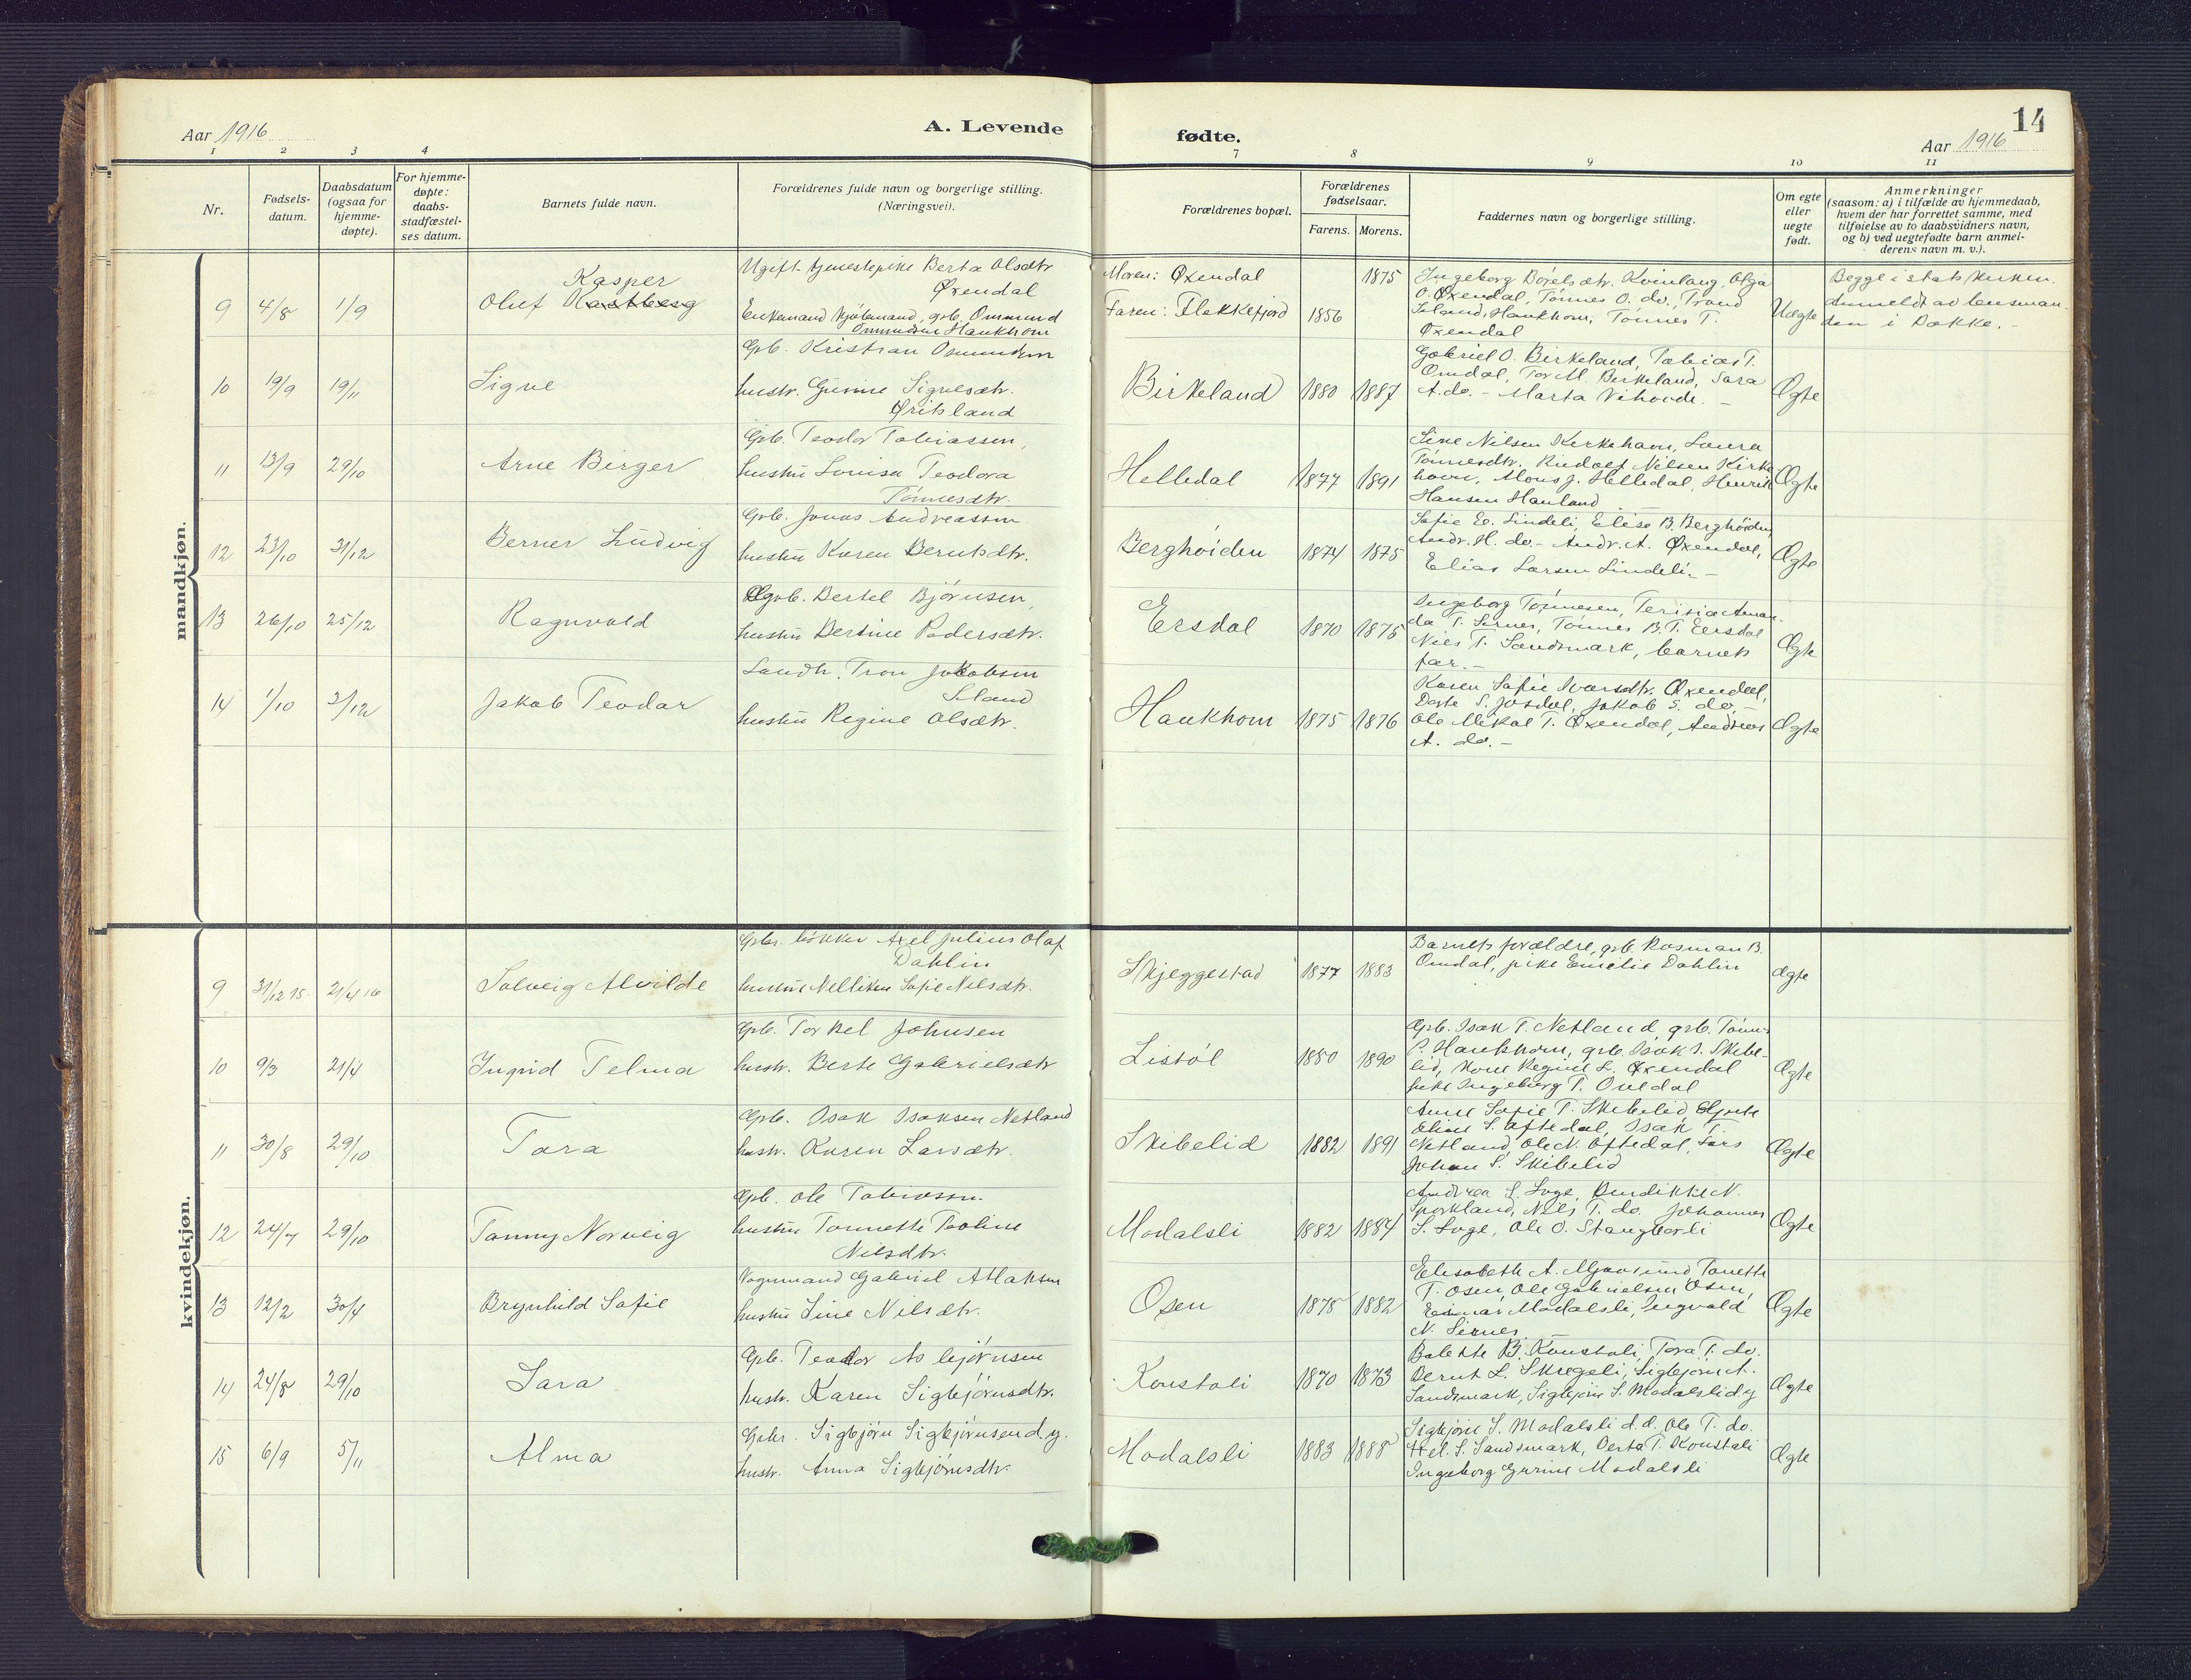 14
Aar 1916
A. Levende
fødte.
Aar 1916
1 2 3 4 7 8 9 10 11
Nr.
Fødsels-
datum.
Daabsdatum
(ogsaa for
hjemme-
døpte).
For hjemme-
døpte:
daabs-
stadfæstel-
ses datum.
Barnets fulde navn.
Forældrenes fulde navn og borgerlige stilling.
(Næringsvei).
Forældrenes bopæl.
Forældrenes
fødselsaar.
Farens. Morens.
Faddernes navn og borgerlige stilling.
Om egte
eller
uegte
født.
Anmerkninger
(saasom: a) i tilfælde av hjemmedaab,
hvem der har forrettet samme, med
tilføielse av to daabsvidners navn,
og b) ved uegtefødte barn anmel-
derens navn m. v.).
mandkjøn.
9 4/8 1/9
Kasper
Oluf
Ugift tjenestepike Berta Olsdtr
Øxendal
Enkemand, grb. Ommund
Ommundsen Haukhom
Moren: Øxendal 1875
Faren: Flekkefjord 1856
Ingeborg Kvinlaug, Olga
O. Øxendal, Tønnes O. do, Trond
Iland, Haukhom, Tønnes T.
Øxendal
Uægte
Begge i statskirken.
Anmeldt av lensman-
den i Bakke. -
10 19/9 19/11
Sigve
Grb. Kristian Osmundsen
hustr. Gurine Sigvesdtr.
Øritsland
Birkeland 1880 1887
Gabriel O. Birkeland, Tobias T.
Omdal, Tor M. Birkeland, Sara
A. do. - Marta Vihovde. -
Ægte
11 13/9 29/10
Arne Birger
Grb. Teodor Tobiassen,
hustru Lovisa Teodora
Tønnesdtr.
Helledal 1877 1891
Line Nilsen Kirkehavn, Laura
Tønnesdtr. Rudolf Nilsen Kirke
havn, Mons J. Helledal, Henrik
Hansen Hauland
Ægte
12 23/10 31/12
Berner Ludvig
Grb. Jonas Andreassen
hustru Karen Berntsdtr.
Berghøiden 1874 1875
Sofie E. Lindeli, Elise B. Berghøiden,
Andr. H. do - Andr. A. Øxendal,
Elias Larsen Lindeli. -
Ægte
13 26/10 25/12
Ragnvald
grb. Bertel Bjørnsen,
hustru Bertine Pedersdtr.
Ersdal 1870 1875
Ingeborg Tønnesen, Terisia Aman-
da T. Sirnes, Tønnes B. T. Eersdal
Niels T. Sandsmark, barnets
far. -
Ægte
14 1/10 3/12
Jakob Teodor
Landh. Tron Jakobsen
Iland
hustru Regine Olsdtr.
Haukhom 1875 1876
Karen Sofie Ivarsdtr. Øxendal,
Dorte S. Josdal, Jakob S. do, -
Ole Mikal T. Øxendal, Andreas
A. do. -
Ægte
kvindekjøn.
9 31/12 15. 21/4 16
Solveig Alvilde
Grbr. bøkker Axel Julius Olaf
Dahlin
hustru Nelliken Sofie Nilsdtr.
Skjeggestad 1877 1883
Barnets forældre, grb. Rasman B.
Omdal, pike Emelie Dahlin
ægte
10 9/3 21/4
Ingrid Telma
Grb. Torkel Johnsen
hustr. Berte Gabrielsdtr
Listøl 1880 1890
Grb. Isak T. Netland, grb. Tønnes
P. Haukhom, grb. Isak I. Skibe-
lid, Kone Regine L. Øxendal
pike Ingeborg T. Ovedal
Ægte
11 30/8 29/10
Tora
Grb. Isak Isaksen Netland
hustr. Karen Larsdtr.
Skibelid 1882 1891
Anne Sofie T. Skibelid,
Eline S. Oftedal, Isak T.
Netland, Ole N. Oftedal, Lars
Johan S. Skibelid
Ægte
12 24/7 29/10
Tonny Norveig
Grb. Ole Tobiassen.
hustru Tonnette Taoline
Nilsdtr.
Modalsli 1882 1884
Andrea S. Loge, Bendikke N.
Sporkland, Nils T. do. Johannes
S. Loge, Ole O. Stangborli
Ægte
13 12/2 30/4
Brynhild Sofie
Vognmand Gabriel Atlaksen
hustru Line Nilsdtr.
Osen 1875 1882
Elisabeth A. Tonette
T. Osen, Ole Gabrielsen Osen,
Einar Modalsli, Ingvald
N. Sirnes
Ægte
14 24/8 29/10
Sara
Grb. Teodor Asbjørnsen
hustr. Karen Sigbjørnsdtr.
Konstali 1870 1873
Bolette B. Konstali, Tora T. do.
Bernt L. Skregeli, Sigbjørn A.
Sandsmark, Sigbjørn S. Modalsli d.y
Ægte
15 6/9 5/11
Alma
Gbr. Sigbjørn Sigbjørnsen d.y.
hustr. Anna Sigbjørnsdtr.
Modalsli 1883 1888
Sigbjørn S. Modalsli d.d. Ole T. do.
Axel. S. Sandsmark, Berta T. Konstali
Ingeborg Gurine Modalsli
Ægte